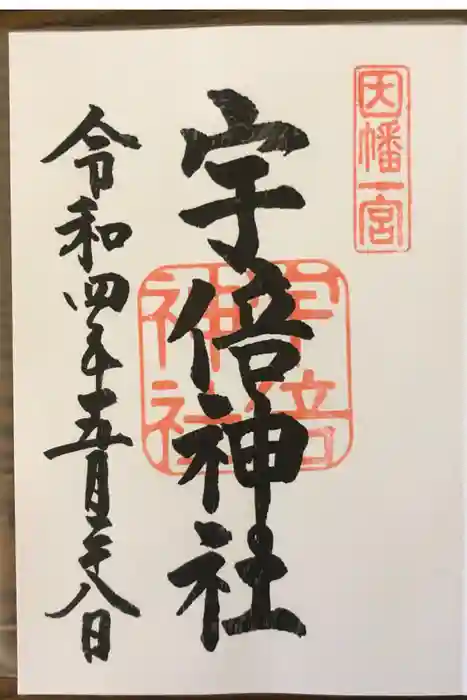 因幡一宮
宇倍神社
宇倍神社
令和四年五月二十八日